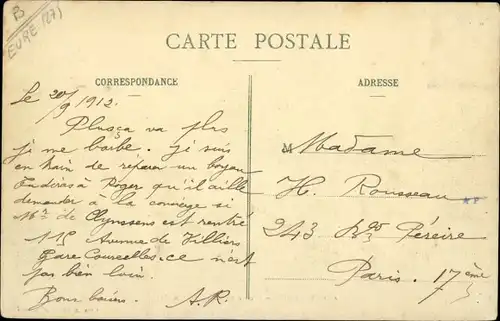 B
EURE (27)
CARTE POSTALE
CORRESPONDANCE
ADRESSE
Le 20/9 1912.
Plus ça va plus
je me barbe. Je suis
en train de réparer un boyau
Tu diras à Roger qu'il aille
demander à la concierge si
Mr de Clynssens est rentré
115 Avenue de Villiers
Gare Courcelles. ce n'est
pas bien loin.
Bons baisers. A.R.
Madame
H. Rousseau
243 Bd Péreire
Paris. 17ème